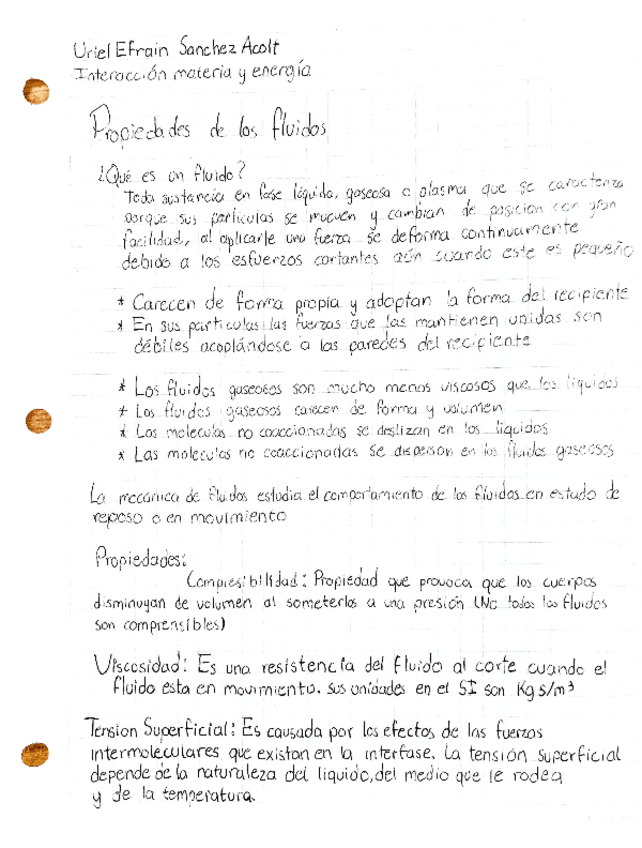 Uriel Efrain Sanchez Acolt
Interacción materia y energía
Propiedades de los fluidos
¿Qué es un fluido?
Toda sustancia en fase líquida, gaseosa o plasma que se caracteriza
porque sus partículas se mueven y cambian de posición con gran
facilidad, al aplicarle una fuerza se deforma continuamente
debido a los esfuerzos cortantes aún cuando este es pequeño
* Carecen de forma propia y adoptan la forma del recipiente
* En sus partículas las fuerzas que las mantienen unidas son
débiles acoplándose a las paredes del recipiente
* Los fluidos gaseosos son mucho menos viscosos que los liquidos
* Los fluidos gaseosos carecen de forma y volumen
* Las moleculas no coaccionadas se deslizan en los liquidos
* Las moleculas no coaccionadas se dispersan en los fluidos gaseosos
La mecánica de fluidos estudia el comportamiento de los fluidos en estado de
reposo o en movimiento
Propiedades:
Compresibilidad: Propiedad que provoca que los cuerpos
disminuyan de volumen al someterlos a una presión (No todos los fluidos
son comprensibles)
Viscosidad: Es una resistencia del fluido al corte cuando el
fluido esta en movimiento. sus unidades en el SI son Kg s/m³
Tension Superficial: Es causada por los efectos de las fuerzas
intermoleculares que existan en la interfase. La tensión superficial
depende de la naturaleza del liquido, del medio que le rodea
y de la temperatura.